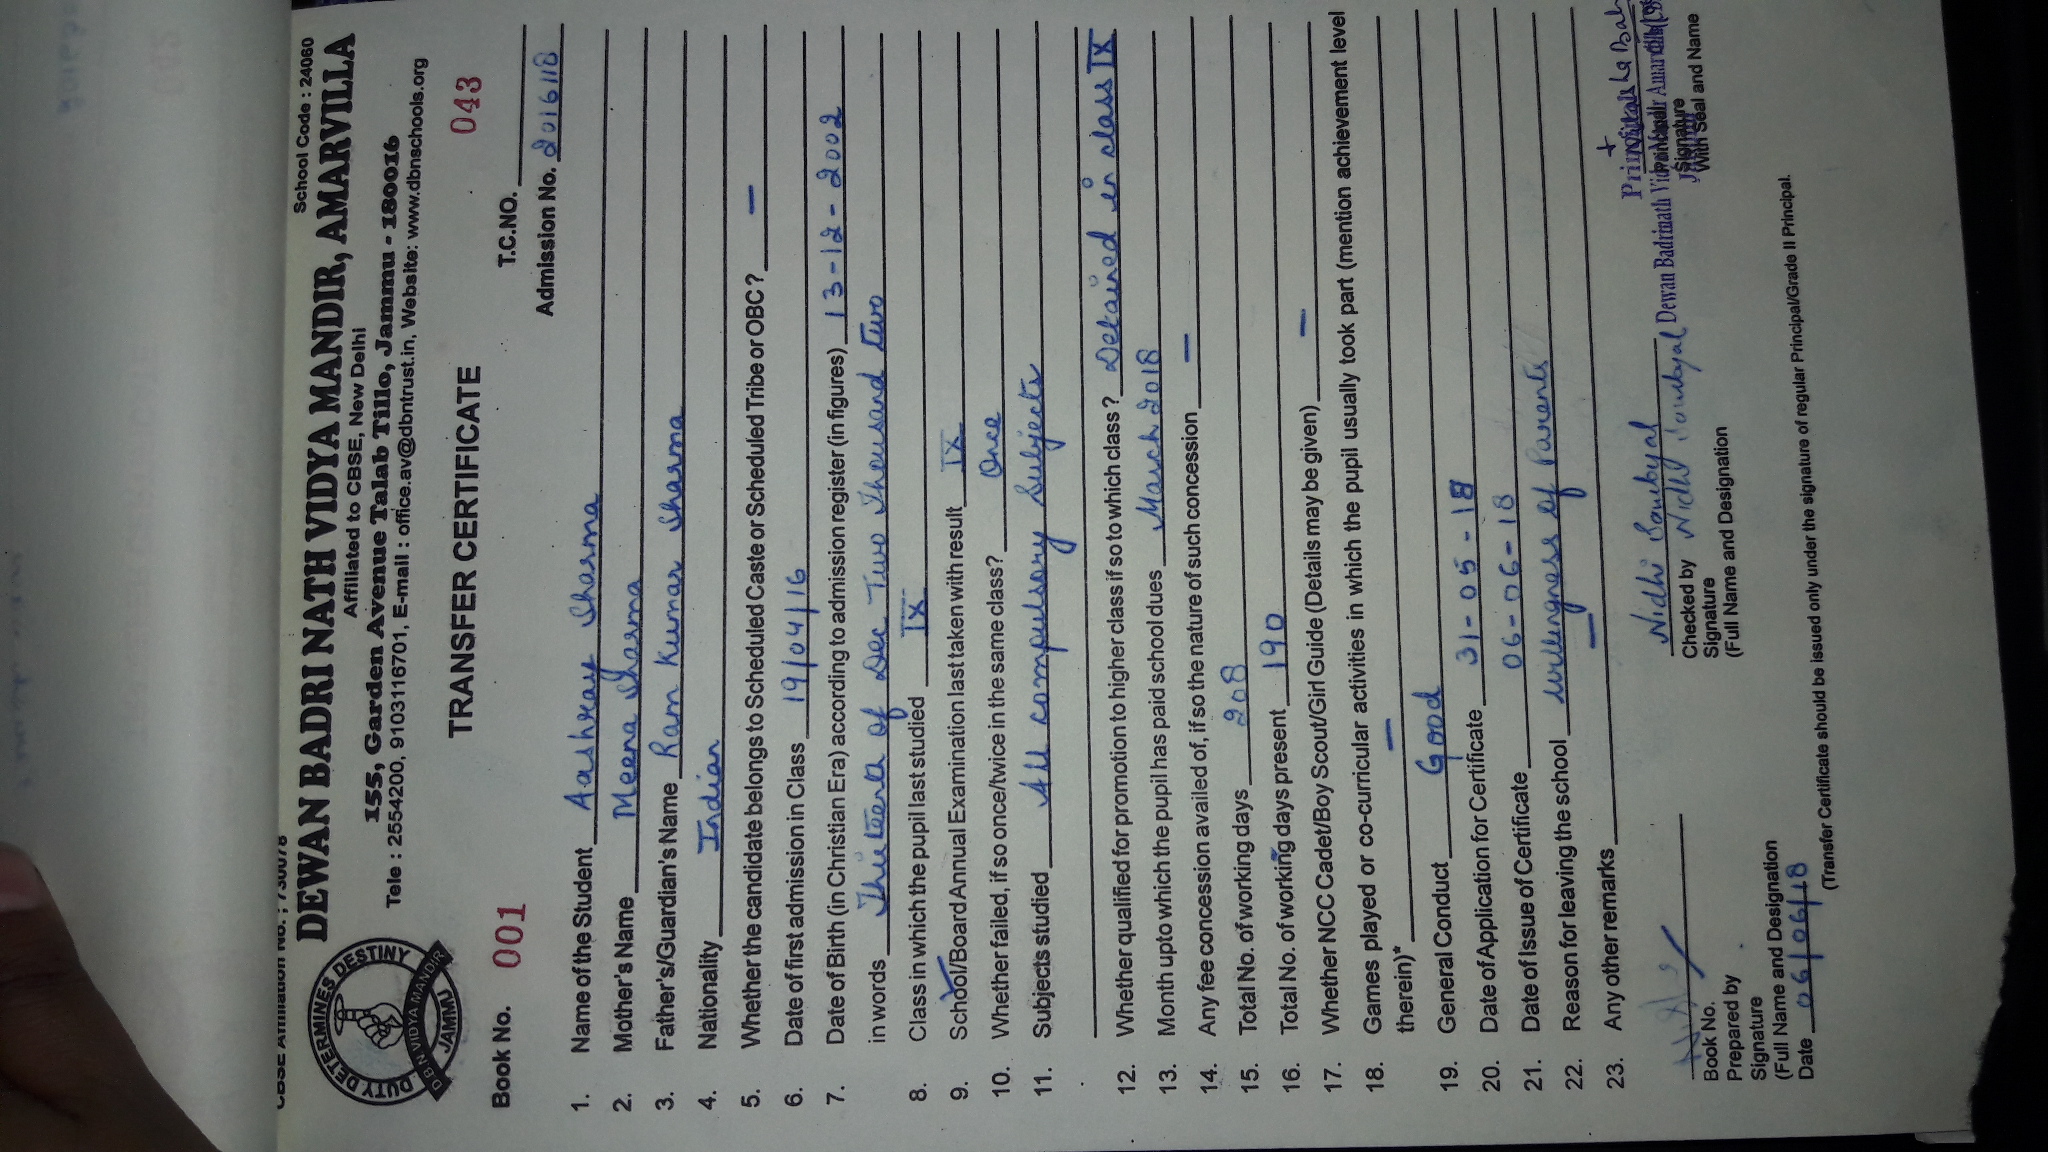 CBSE Affiliation No. : 730078 School Code : 24060
DEWAN BADRI NATH VIDYA MANDIR, AMARVILLA
Affiliated to CBSE, New Delhi
155, Garden Avenue Talab Tillo, Jammu - 180016
Tele : 2554200, 9103116701, E-mail : office.av@dbntrust.in, Website: www.dbnschools.org
DUTY DETERMINES DESTINY
DBN VIDYA MANDIR
JAMMU
TRANSFER CERTIFICATE
Book No. 001 T.C.NO. 043
Admission No. 2016118
1. Name of the Student Aashray Sharma
2. Mother's Name Meena Sharma
3. Father's/Guardian's Name Ram Kumar Sharma
4. Nationality Indian
5. Whether the candidate belongs to Scheduled Caste or Scheduled Tribe or OBC? —
6. Date of first admission in Class 19/04/16
7. Date of Birth (in Christian Era) according to admission register (in figures) 13-12-2002
in words Thirteenth of Dec Two Thousand Two
8. Class in which the pupil last studied IX
9. School/Board Annual Examination last taken with result IX
10. Whether failed, if so once/twice in the same class? Once
11. Subjects studied All compulsory Subjects
12. Whether qualified for promotion to higher class if so to which class? Detained in class IX
13. Month upto which the pupil has paid school dues March 2018
14. Any fee concession availed of, if so the nature of such concession —
15. Total No. of working days 208
16. Total No. of working days present 190
17. Whether NCC Cadet/Boy Scout/Girl Guide (Details may be given) —
18. Games played or co-curricular activities in which the pupil usually took part (mention achievement level
therein)* —
19. General Conduct Good
20. Date of Application for Certificate 31-05-18
21. Date of Issue of Certificate 06-06-18
22. Reason for leaving the school willingness of Parents
23. Any other remarks —
Book No.
Prepared by
Signature
(Full Name and Designation
Date 06/06/18
Nidhi Sambyal
Checked by Nidhi Sambyal
Signature
(Full Name and Designation
Principal
Dewan Badrinath Vidya Mandir Amarvilla
Signature
With Seal and Name
(Transfer Certificate should be issued only under the signature of regular Principal/Grade II Principal.